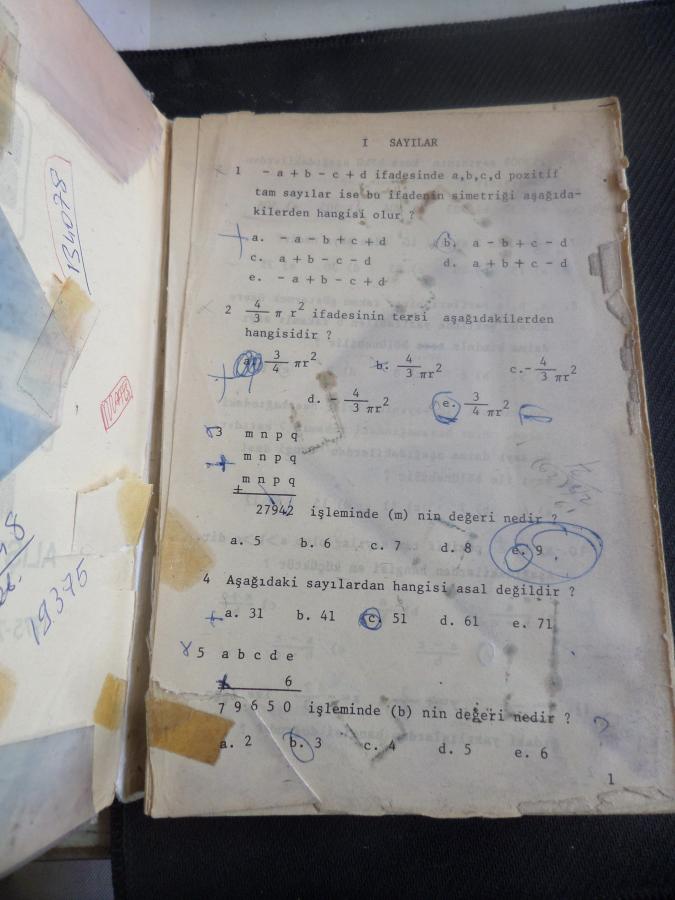 134078
19375
İ SAYILAR
1 - a + b - c + d ifadesinde a,b,c,d pozitif
tam sayılar ise bu ifadenin simetriği aşağıda-
kilerden hangisi olur ?
a. - a - b + c + d b. a - b + c - d
c. a + b - c - d d. a + b + c - d
e. - a + b - c + d
2 4/3 π r² ifadesinin tersi aşağıdakilerden
hangisidir ?
a. 3/4 πr² b. 4/3 πr² c. - 4/3 πr²
d. - 4/3 πr² e. 3/4 πr²
3 m n p q
m n p q
m n p q
+
27942 işleminde (m) nin değeri nedir ?
a. 5 b. 6 c. 7 d. 8 e. 9
4 Aşağıdaki sayılardan hangisi asal değildir ?
a. 31 b. 41 c. 51 d. 61 e. 71
5 a b c d e
x 6
7 9 6 5 0 işleminde (b) nin değeri nedir ?
a. 2 b. 3 c. 4 d. 5 e. 6
1